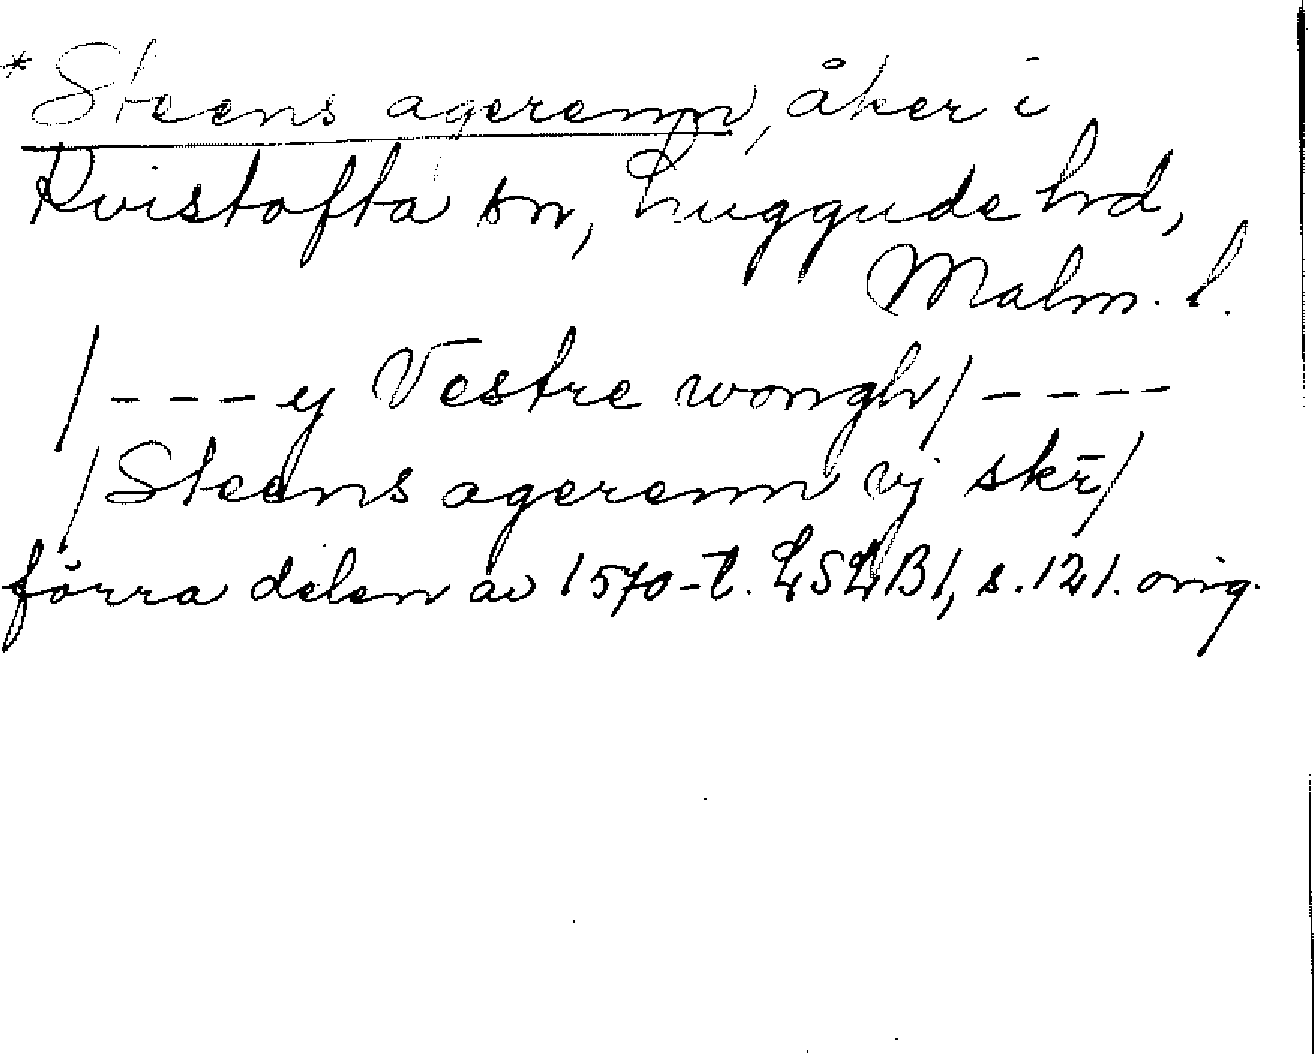 *Steens agerenn, åker i
Kvistofta sn, Luggude hd,
Malm. l.
/ - - - ej Vestre wongh / - - - -
/ Steens agerenn vj skr̄ /
förra delen av 1570-t. LSLB1, s. 121. orig.